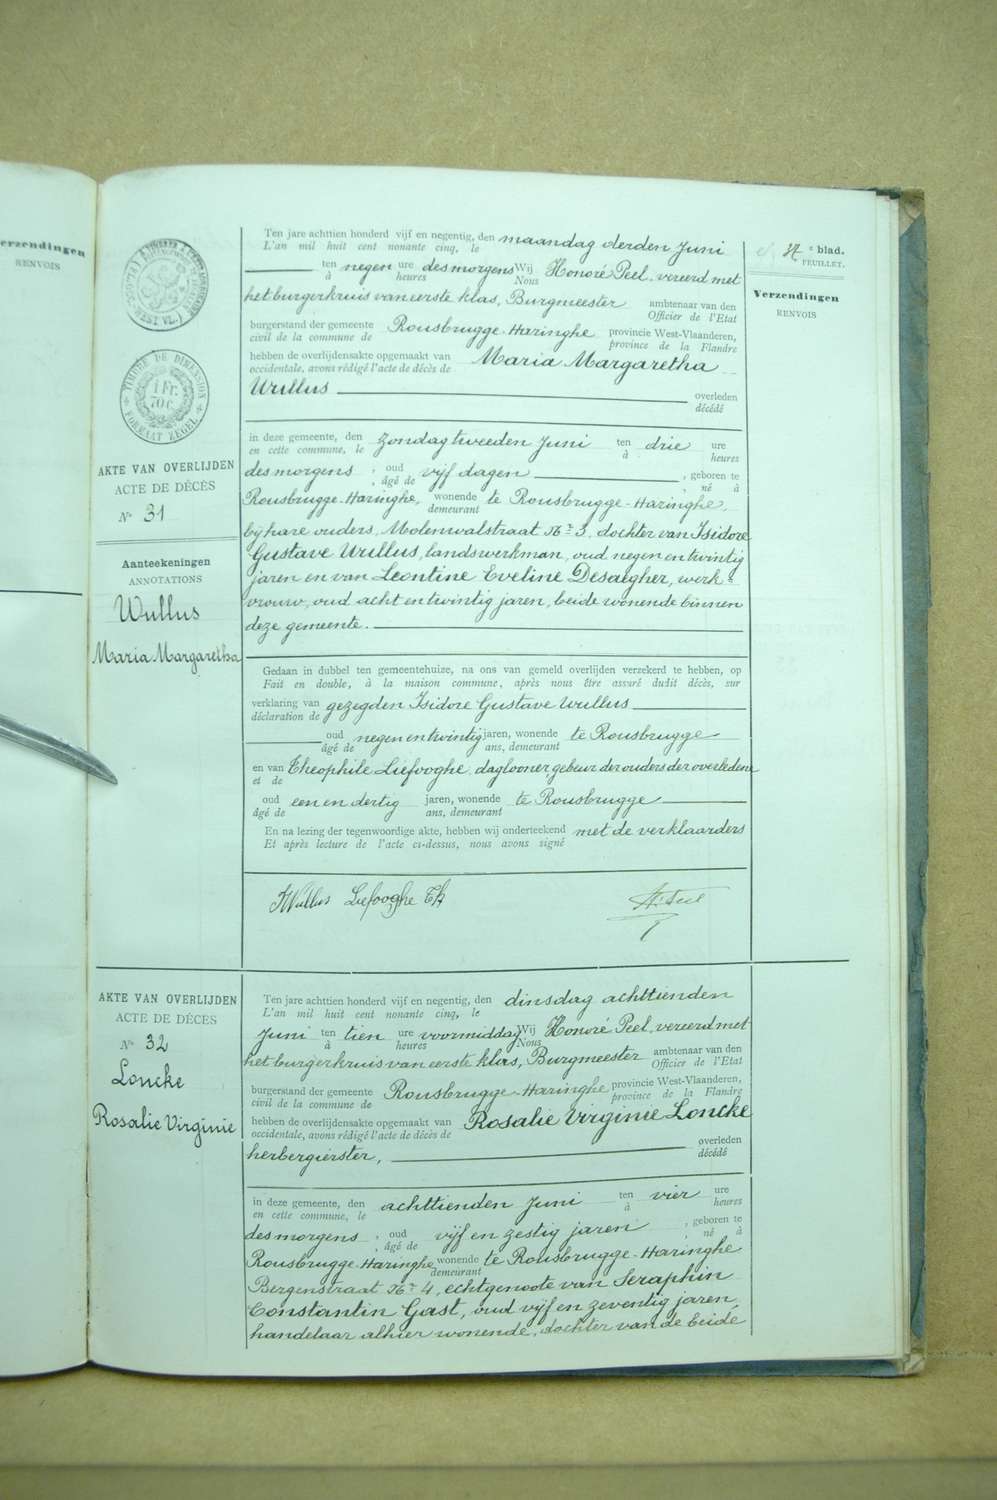 erzendingen
RENVOIS
TIMBRE DE DIMENSION
1 Fr.
70 c.
FORMAAT ZEGEL
e/ 17 e blad.
FEUILLET.
Verzendingen
RENVOIS
AKTE VAN OVERLIJDEN
ACTE DE DÉCÈS
N° 31
Aanteekeningen
ANNOTATIONS
Wullus
Maria Margaretha
Ten jare achttien honderd vijf en negentig, den maandag derden Juni
L'an mil huit cent nonante cinq, le
ten negen ure des morgens Wij Honoré Peel, vereerd met
à heures Nous
het burgerkruis van eerste klas, Burgmeester ambtenaar van den
Officier de l'Etat
burgerstand der gemeente Rousbrugge-Haringhe provincie West-Vlaanderen,
civil de la commune de province de la Flandre
hebben de overlijdensakte opgemaakt van Maria Margaretha
occidentale, avons rédigé l'acte de décès de
Wullus overleden
décédé
in deze gemeente, den zondag tweeden Juni ten drie ure
en cette commune, le à heures
des morgens ; oud vijf dagen , geboren te
; âgé de , né à
Rousbrugge-Haringhe, wonende te Rousbrugge-Haringhe,
demeurant
bij hare ouders, Molenwalstraat Nr 3, dochter van Isidore
Gustave Wullus, landswerkman, oud negen en twintig
jaren en van Leontine Eveline Desaegher, werk-
vrouw, oud acht en twintig jaren, beide wonende binnen
deze gemeente.
Gedaan in dubbel ten gemeentehuize, na ons van gemeld overlijden verzekerd te hebben, op
Fait en double, à la maison commune, après nous être assuré dudit décès, sur
verklaring van gezegden Isidore Gustave Wullus
déclaration de
oud negen en twintig jaren, wonende te Rousbrugge
âgé de ans, demeurant
en van Theophile Liefooghe, daglooner, gebuur der ouders der overledene
et de
oud een en dertig jaren, wonende te Rousbrugge
âgé de ans, demeurant
En na lezing der tegenwoordige akte, hebben wij onderteekend met de verklaarders
Et après lecture de l'acte ci-dessus, nous avons signé
I Wullus Liefooghe Th H. Peel
AKTE VAN OVERLIJDEN
ACTE DE DÉCÈS
N° 32
Loncke
Rosalie Virginie
Ten jare achttien honderd vijf en negentig, den dinsdag achttienden
L'an mil huit cent nonante cinq, le
Juni ten tien ure voormiddag Wij Honoré Peel, vereerd met
à heures Nous
het burgerkruis van eerste klas, Burgmeester ambtenaar van den
Officier de l'Etat
burgerstand der gemeente Rousbrugge-Haringhe provincie West-Vlaanderen,
civil de la commune de province de la Flandre
hebben de overlijdensakte opgemaakt van Rosalie Virginie Loncke
occidentale, avons rédigé l'acte de décès de
herbergierster, overleden
décédé
in deze gemeente, den achttienden Juni ten vier ure
en cette commune, le à heures
des morgens ; oud vijf en zestig jaren , geboren te
; âgé de , né à
Rousbrugge-Haringhe wonende te Rousbrugge-Haringhe
demeurant
Bergenstraat Nr 4, echtgenoote van Seraphin
Constantin Gast, oud vijf en zeventig jaren,
handelaar alhier wonende, dochter van de beide